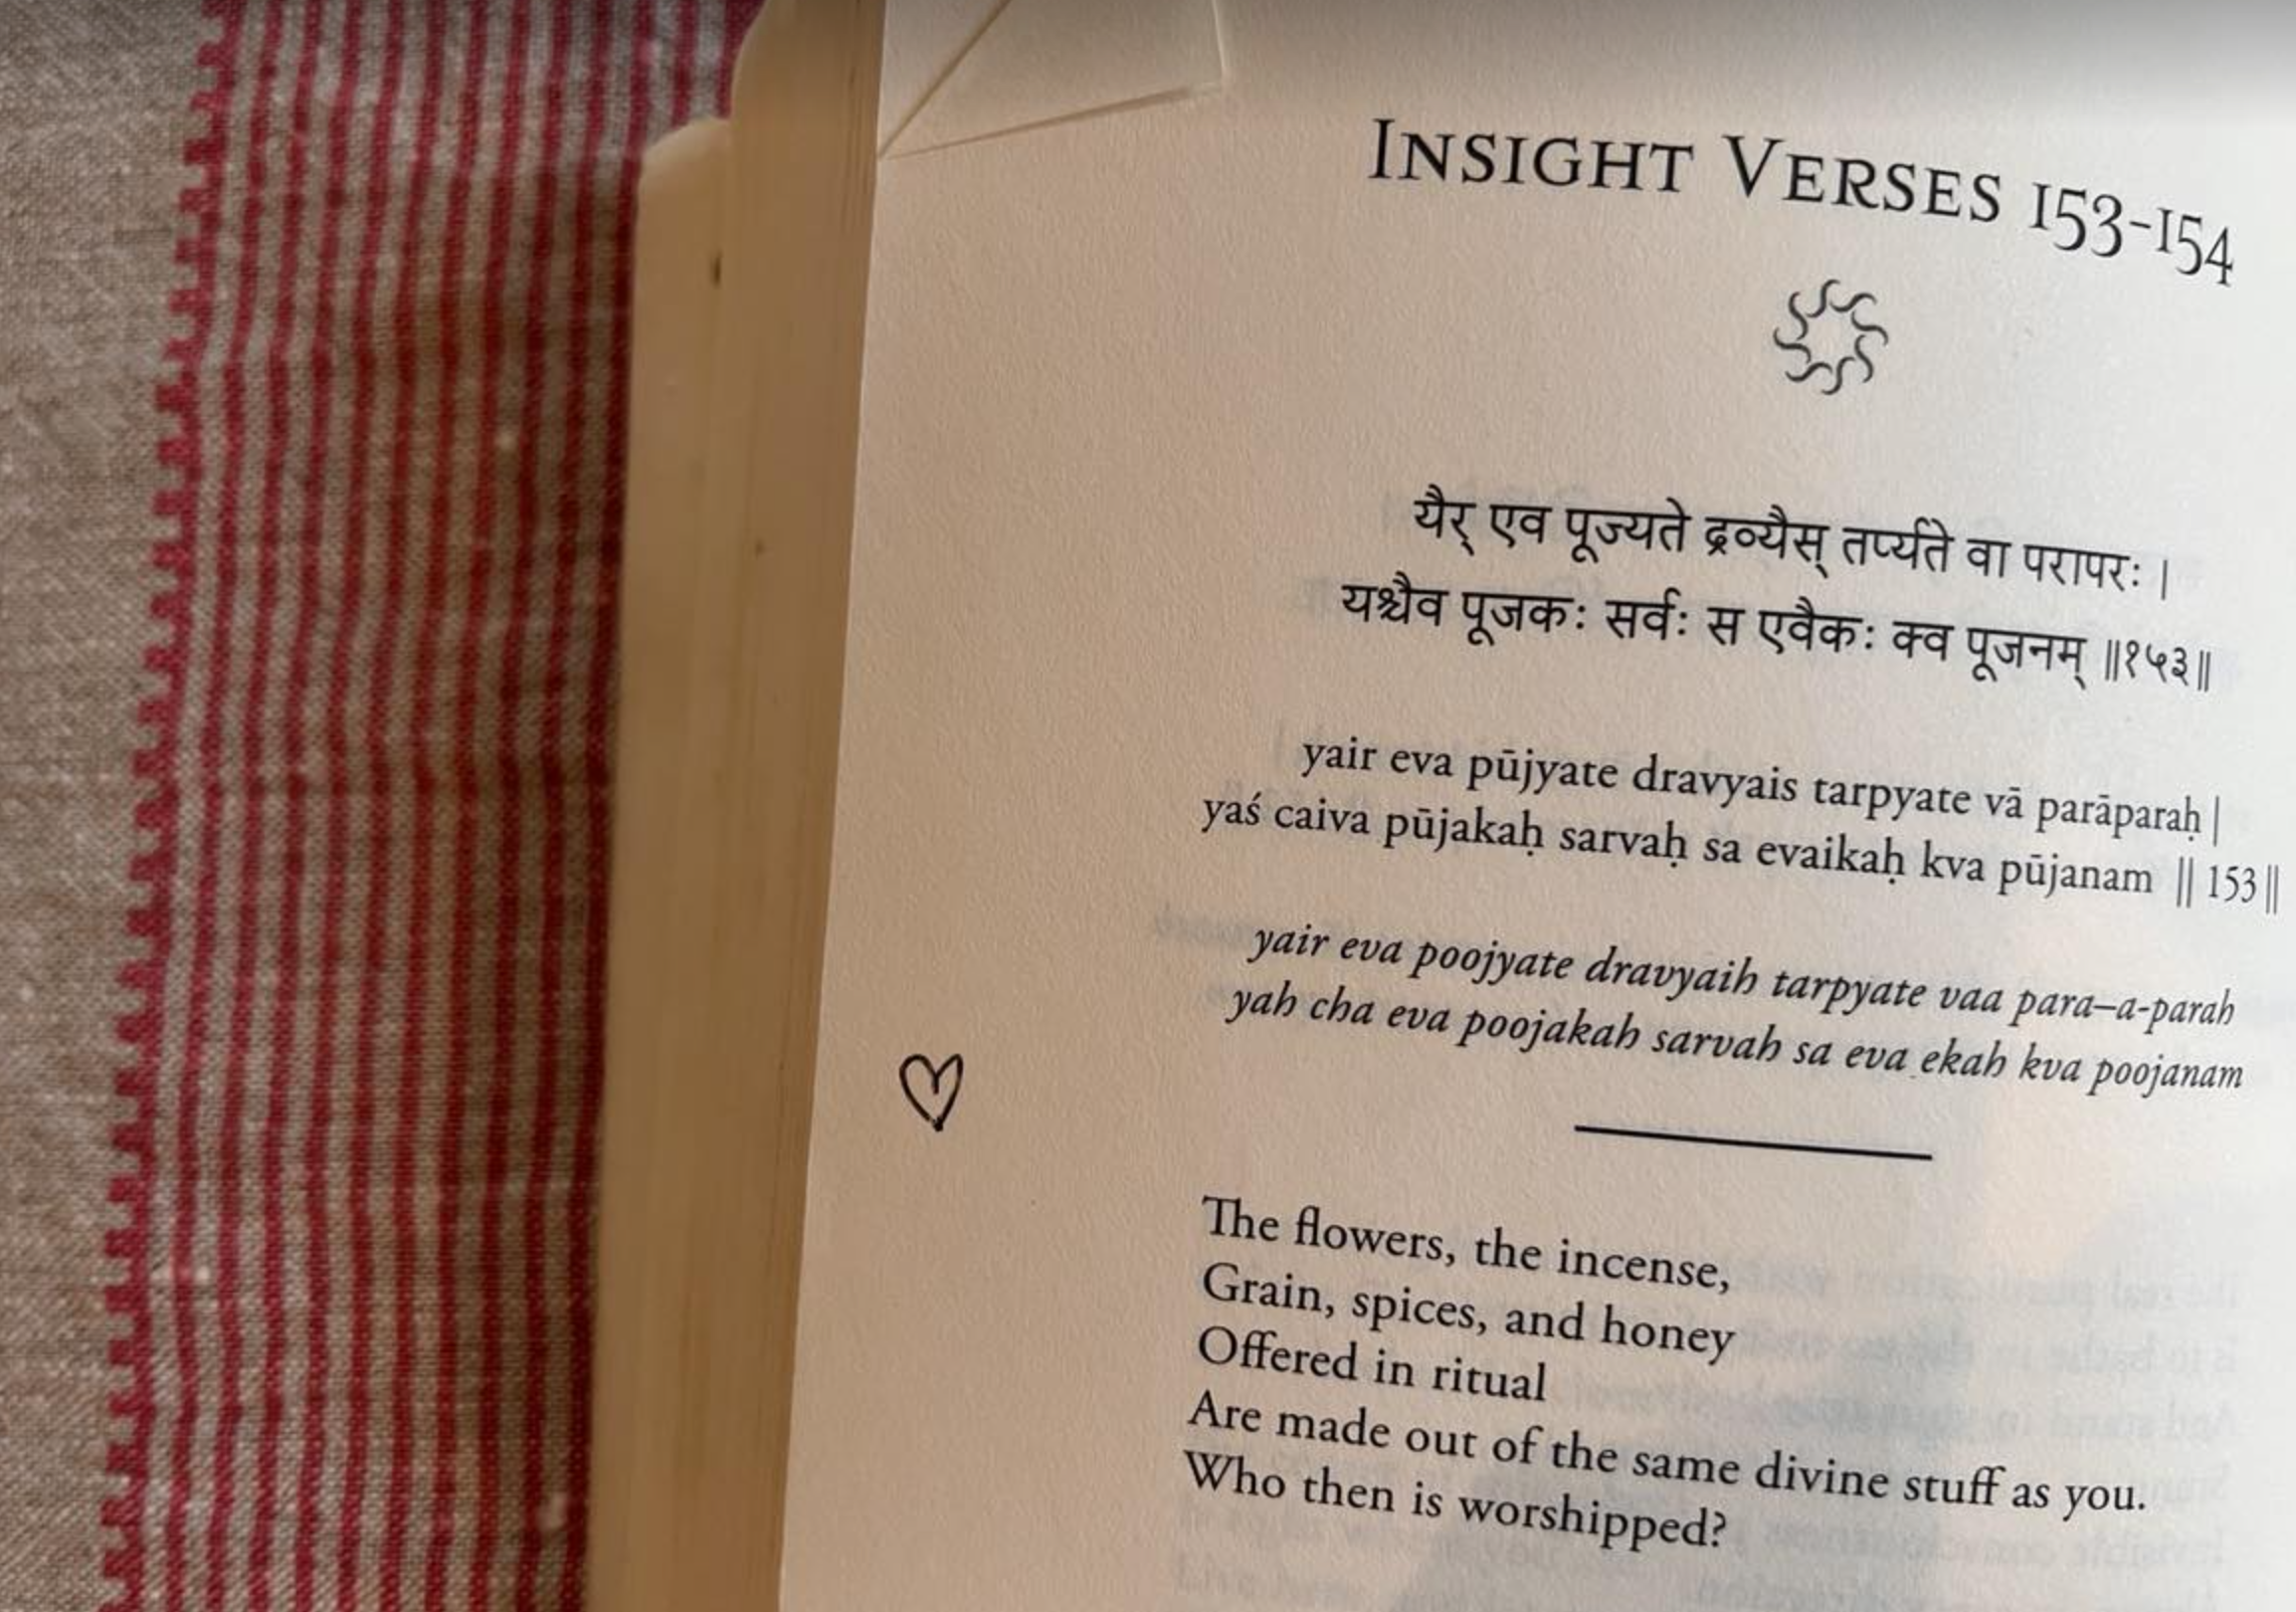 INSIGHT VERSES 153-154
यैर् एव पूज्यते द्रव्यैस् तर्प्यते वा परापरः ।
यश्चैव पूजकः सर्वः स एवैकः क्व पूजनम् ॥१५३॥
yair eva pūjyate dravyais tarpyate vā parāparaḥ |
yaś caiva pūjakaḥ sarvaḥ sa evaikaḥ kva pūjanam || 153 ||
yair eva poojyate dravyaih tarpyate vaa para–a-parah
yah cha eva poojakah sarvah sa eva ekah kva poojanam
The flowers, the incense,
Grain, spices, and honey
Offered in ritual
Are made out of the same divine stuff as you.
Who then is worshipped?